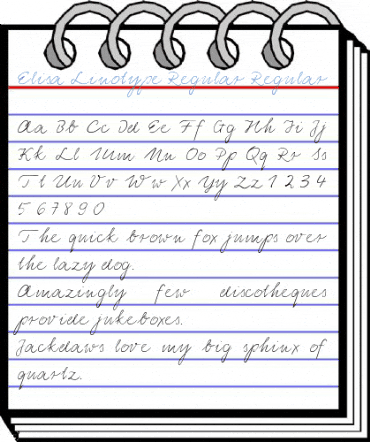 Elisa Linotype Regular Regular
Aa Bb Cc Dd Ee Ff Gg Hh Ii Jj
Kk Ll Mm Nn Oo Pp Qq Rr Ss
Tt Uu Vv Ww Xx Yy Zz 1 2 3 4
5 6 7 8 9 0
The quick brown fox jumps over
the lazy dog.
Amazingly few discotheques
provide jukeboxes.
Jackdaws love my big sphinx of
quartz.